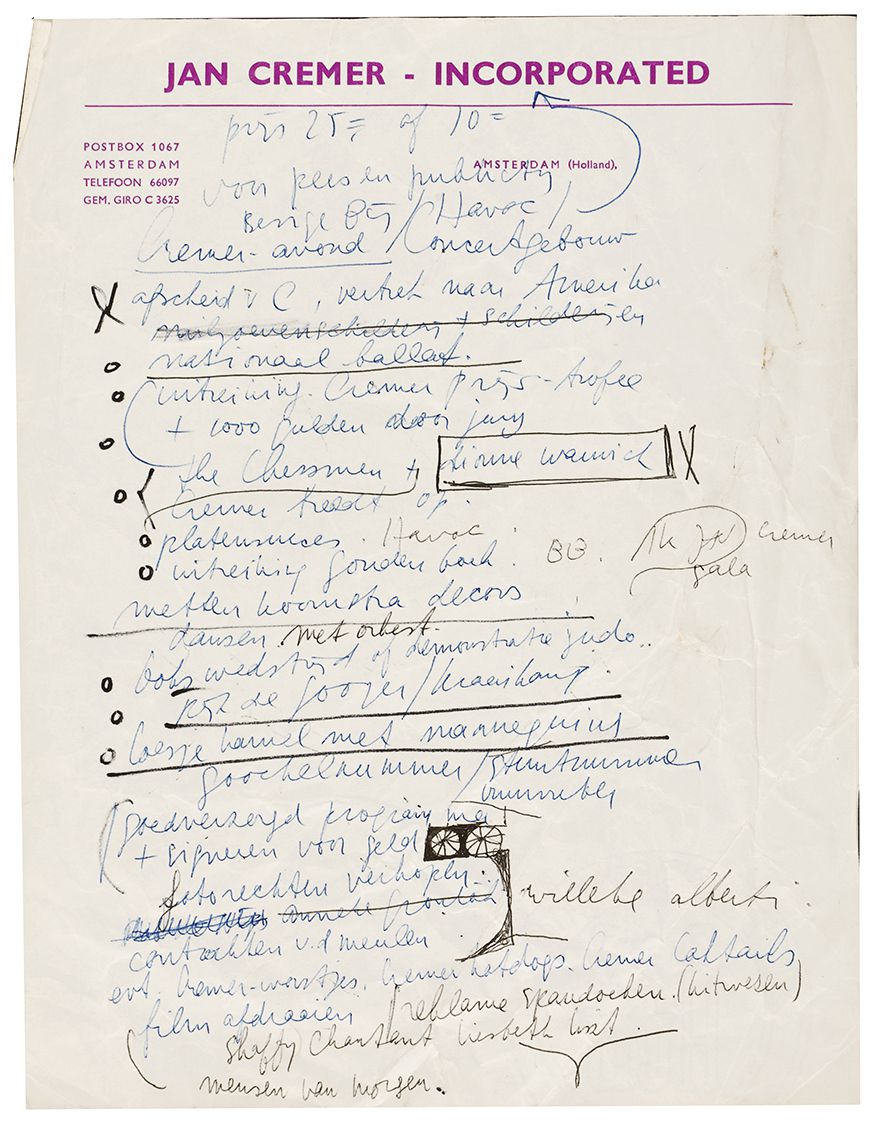 JAN CREMER - INCORPORATED
prijs 25= of 10=
POSTBOX 1067
AMSTERDAM
TELEFOON 66097
GEM. GIRO C 3625
AMSTERDAM (Holland),
voor pers en publicity
Bezige Bij / Havoc /
Cremer-avond / Concertgebouw
X afscheid v C, vertrek naar Amerika
+ schilderijen
nationaal ballet.
uitreiking Cremer prijs-trofee
+ 1000 gulden door jury
the Chessmen + dionne warwick X
Cremer treedt op.
platensucces. Havoc.
uitreiking gouden boek. BB. Cremer
gala
metten koornstra decors
dansen met orkest.
boks wedstrijd of demonstratie judo..
rijk de gooyer / kraaikamp.
loesje hamel met mannequins
goochelnummer / stuntnummer
goedverzorgd programma
+ signeren voor geld
fotorechten verkopen.
anneke grönloh willeke alberti.
contrakten v.d meulen
evt. Cremer-worstjes, Cremer hotdogs. Cremer Coktails
film afdraaien / reklame spandoeken. (kitwesen)
shaffy Chantant liesbeth list.
mensen van morgen..